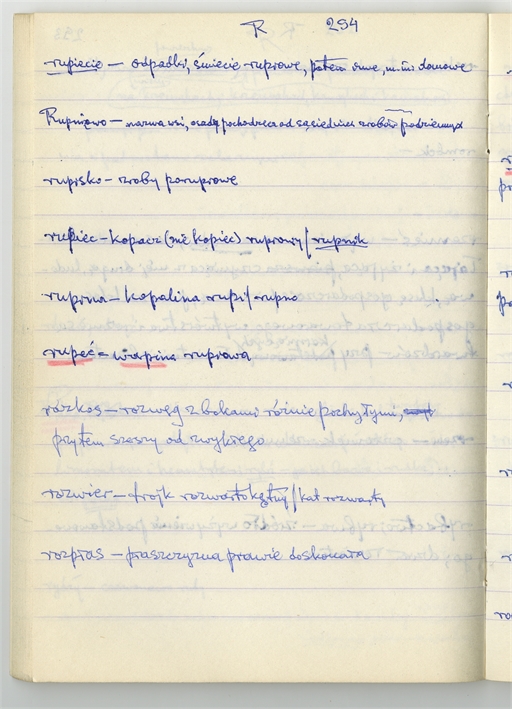 R 294
rupiecie — odpadki, śmiecie ruprowe, potem inne, m.in. domowe
Rupniewo — nazwa wsi, osady pochodząca od sąsiednich zrobów podziemnych
rupisko — zroby poruprowe
rupiec — kopacz (nie kopiec) ruprowy / rupnik
ruprna — kopalina rupi / rupno
rupeć = wapina ruprowa
rozkos — rozwęg z bokami różnie pochyłymi,
przytem szerszy od zwykłego
rozwier — trojk rozwartokątny / kąt rozwarty
rozpłas — płaszczyzna prawie doskonała